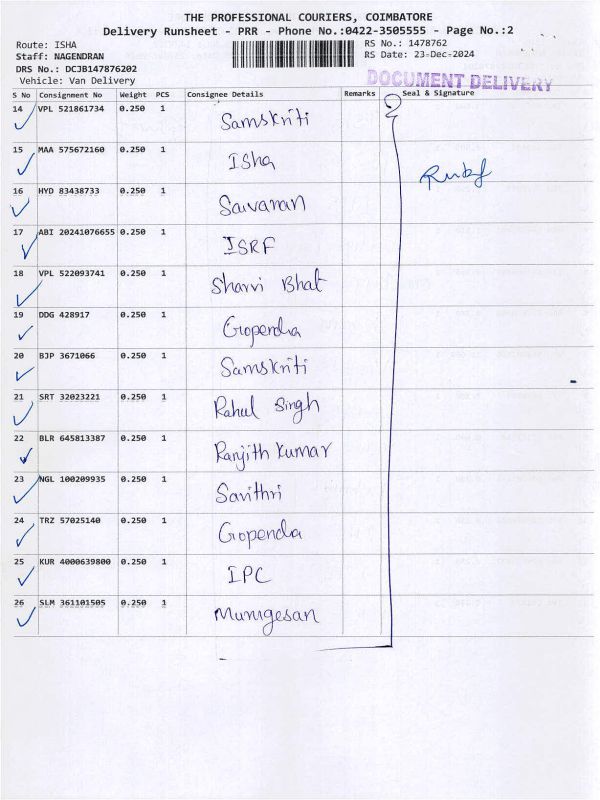 THE PROFESSIONAL COURIERS, COIMBATORE
Delivery Runsheet - PRR - Phone No.:0422-3505555 - Page No.:2
Route: ISHA RS No.: 1478762
Staff: NAGENDRAN RS Date: 23-Dec-2024
DRS No.: DCJB147876202
Vehicle: Van Delivery DOCUMENT DELIVERY
S No Consignment No Weight PCS Consignee Details Remarks Seal & Signature
14 VPL 521861734 0.250 1 Samskriti
15 MAA 575672160 0.250 1 Isha
16 HYD 83438733 0.250 1
17 ABI 20241076655 0.250 1 ISRF
18 VPL 522093741 0.250 1 Sharvi Bhat
19 DDG 428917 0.250 1 Gopendra
20 BJP 3671066 0.250 1 Samskriti
21 SRT 32023221 0.250 1 Rahul Singh
22 BLR 645813387 0.250 1 Ranjith Kumar
23 NGL 100209935 0.250 1 Savithri
24 TRZ 57025140 0.250 1 Gopendra
25 KUR 4000639800 0.250 1 IPC
26 SLM 361101505 0.250 1 Murugesan